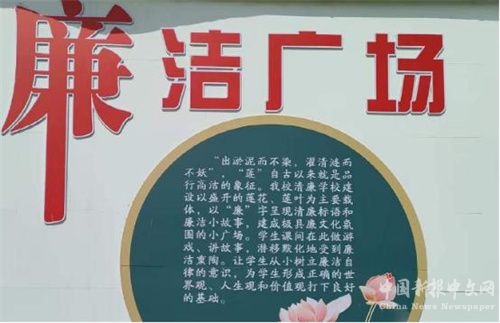 廉洁广场
“出淤泥而不染，濯清涟而
不妖”，“莲”自古以来就是品
行高洁的象征。我校清廉学校建
设以盛开的莲花、莲叶为主要载
体，以“廉”字呈现清廉标语和
廉洁小故事，建成极具廉文化氛
围的小广场。学生课间在此做游
戏、讲故事，潜移默化地受到廉
洁熏陶。让学生从小树立廉洁自
律的意识，为学生形成正确的世
界观、人生观和价值观打下良好
的基础。
中国新报中文网
China News Newspaper